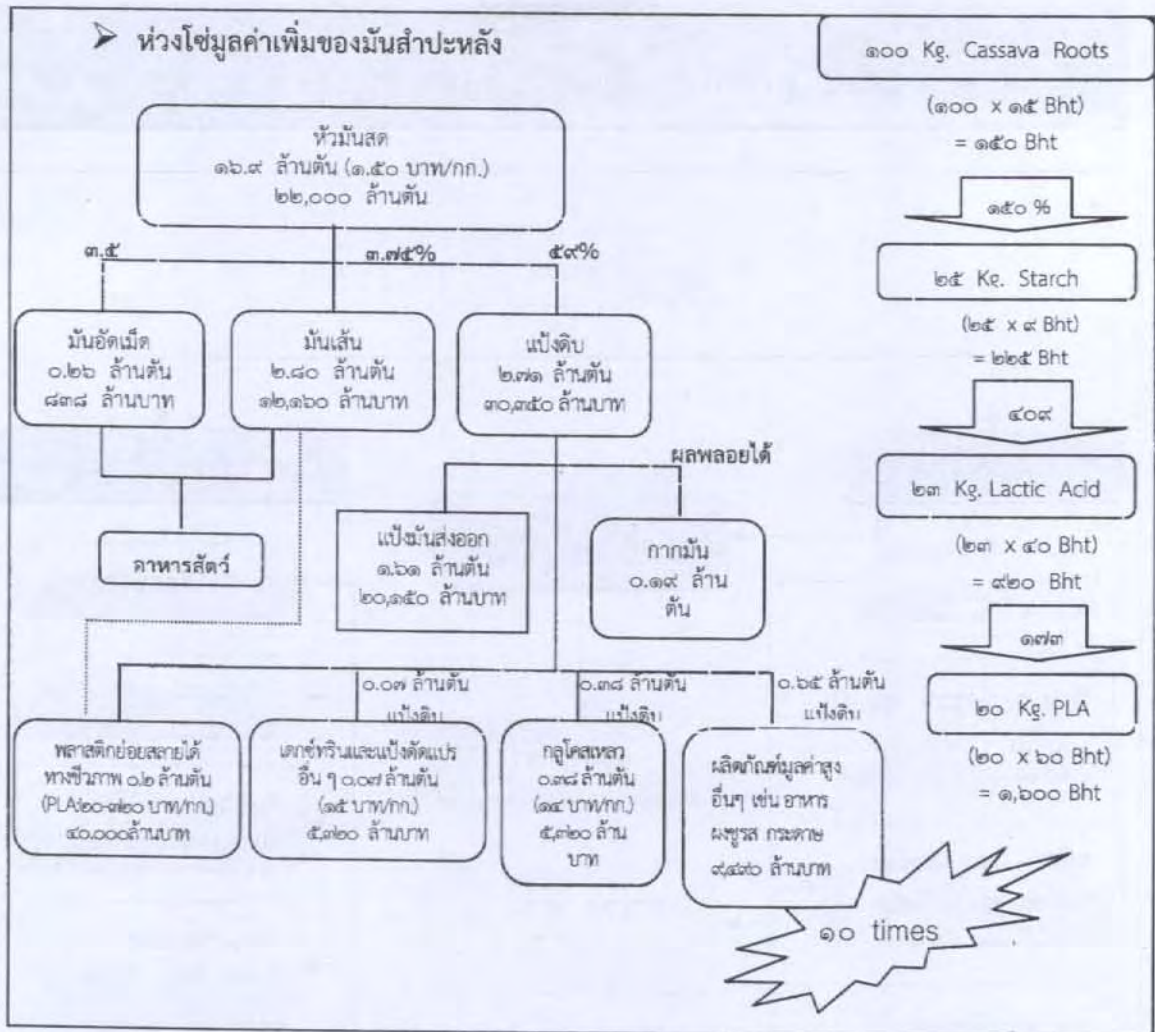 ➤ ห่วงโซ่มูลค่าเพิ่มของมันสำปะหลัง
หัวมันสด
๑๖.๙ ล้านตัน (๑.๕๐ บาท/กก.)
๒๒,๐๐๐ ล้านตัน
๓.๕
๓.๗๕%
๕๙%
มันอัดเม็ด
๐.๒๖ ล้านตัน
๘๓๘ ล้านบาท
มันเส้น
๒.๘๐ ล้านตัน
๑๒,๑๖๐ ล้านบาท
แป้งดิบ
๒.๗๑ ล้านตัน
๓๐,๓๕๐ ล้านบาท
อาหารสัตว์
ผลพลอยได้
แป้งมันส่งออก
๑.๖๑ ล้านตัน
๒๐,๑๕๐ ล้านบาท
กากมัน
๐.๑๙ ล้าน
ตัน
๐.๐๗ ล้านตัน
แป้งดิบ
๐.๓๘ ล้านตัน
แป้งดิบ
๐.๖๕ ล้านตัน
แป้งดิบ
พลาสติกย่อยสลายได้
ทางชีวภาพ ๐.๒ ล้านตัน
๔๐.๐๐๐ล้านบาท
เดกซ์ทรินและแป้งดัดแปร
อื่น ๆ ๐.๐๗ ล้านตัน
(๑๕ บาท/กก.)
๕,๓๒๐ ล้านบาท
กลูโคสเหลว
๐.๓๘ ล้านตัน
(๑๔ บาท/กก.)
๕,๓๒๐ ล้าน
บาท
ผลิตภัณฑ์มูลค่าสูง
อื่นๆ เช่น อาหาร
ผงชูรส กระดาษ
ล้านบาท
๑๐ times
๑๐๐ Kg. Cassava Roots
(๑๐๐ x ๑๕ Bht)
= ๑๕๐ Bht
๑๕๐ %
๒๕ Kg. Starch
(๒๕ x ๙ Bht)
= ๒๒๕ Bht
๔๐๙
๒๓ Kg. Lactic Acid
(๒๓ x ๔๐ Bht)
= ๙๒๐ Bht
๑๗๓
๒๐ Kg. PLA
(๒๐ x ๖๐ Bht)
= ๑,๖๐๐ Bht